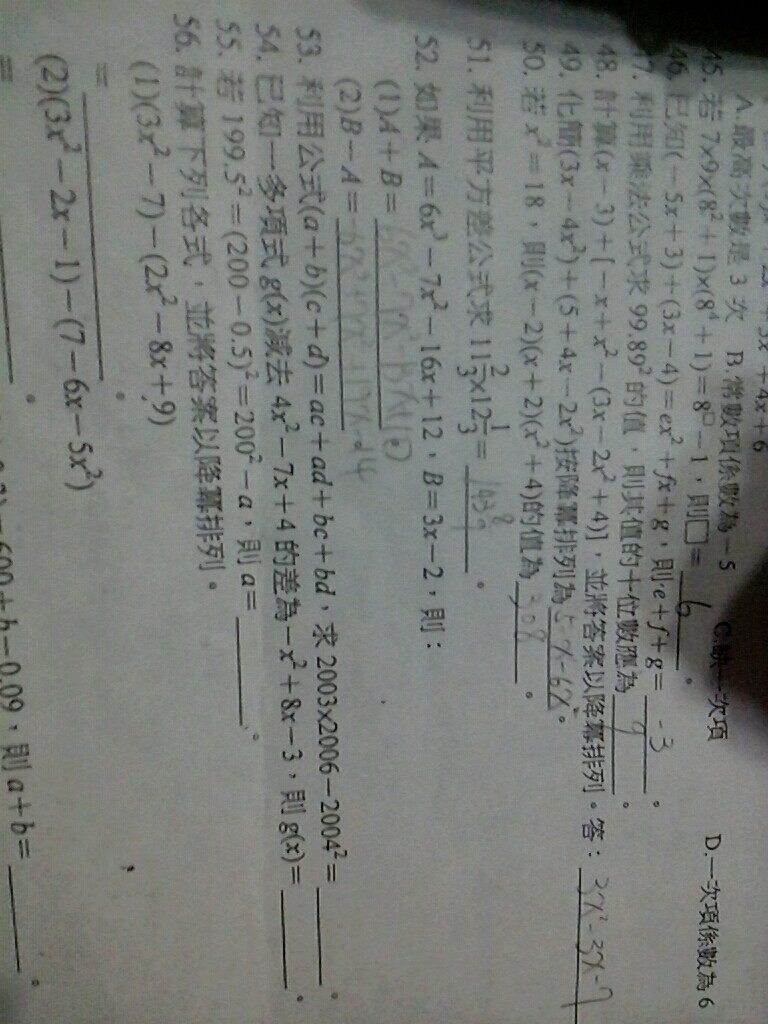 +3x+4x+6
A.最高次數是 3 次 B.常數項係數為−5 C.缺一次項 D.一次項係數為 6
45. 若 7×9×(8²+1)×(8⁴+1)=8□−1，則□= 6 。
46. 已知(−5x+3)+(3x−4)=ex²+fx+g，則 e+f+g= -3 。
47. 利用乘法公式求 99.89²的值，則其值的十位數應為 9 。
48. 計算(x−3)+[−x+x²−(3x−2x²+4)]，並將答案以降冪排列。答： 3x²-3x-7
49. 化簡(3x−4x²)+(5+4x−2x²)按降冪排列為 。
50. 若 x²=18，則(x−2)(x+2)(x²+4)的值為 308 。
51. 利用平方差公式求 11 2/3×12 1/3= 143 8/9 。
52. 如果 A=6x³−7x²−16x+12，B=3x−2，則：
(1)A+B=
(2)B−A=
53. 利用公式(a+b)(c+d)=ac+ad+bc+bd，求 2003×2006−2004²= 。
54. 已知一多項式 g(x)減去 4x²−7x+4 的差為−x²+8x−3，則 g(x)= 。
55. 若 199.5²=(200−0.5)²=200²−a，則 a= 。
56. 計算下列各式，並將答案以降冪排列。
(1)(3x²−7)−(2x²−8x+9)
= 。
(2)(3x²−2x−1)−(7−6x−5x²)
= 。
600+b−0.09，則 a+b= 。